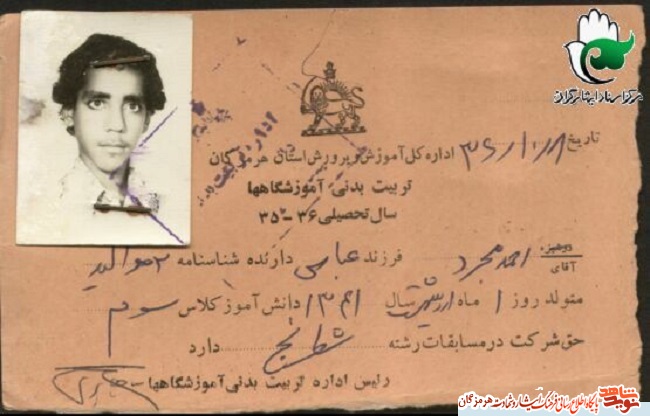 مرکز اسناد ایثارگران
تاریخ
اداره کل آموزش و پرورش استان هرمزگان
تربیت بدنی آموزشگاهها
سال تحصیلی ۳۶-۳۵
دوشیزه
آقای احمد مجرد فرزند عباس دارنده شناسنامه ۲
متولد روز ۱ ماه سال دانش آموز کلاس سوم
حق شرکت در مسابقات رشته شطرنج دارد
رئیس اداره تربیت بدنی آموزشگاهها
نوید شاهد پایگاه اطلاع رسانی فرهنگ ایثار و شهادت هرمزگان